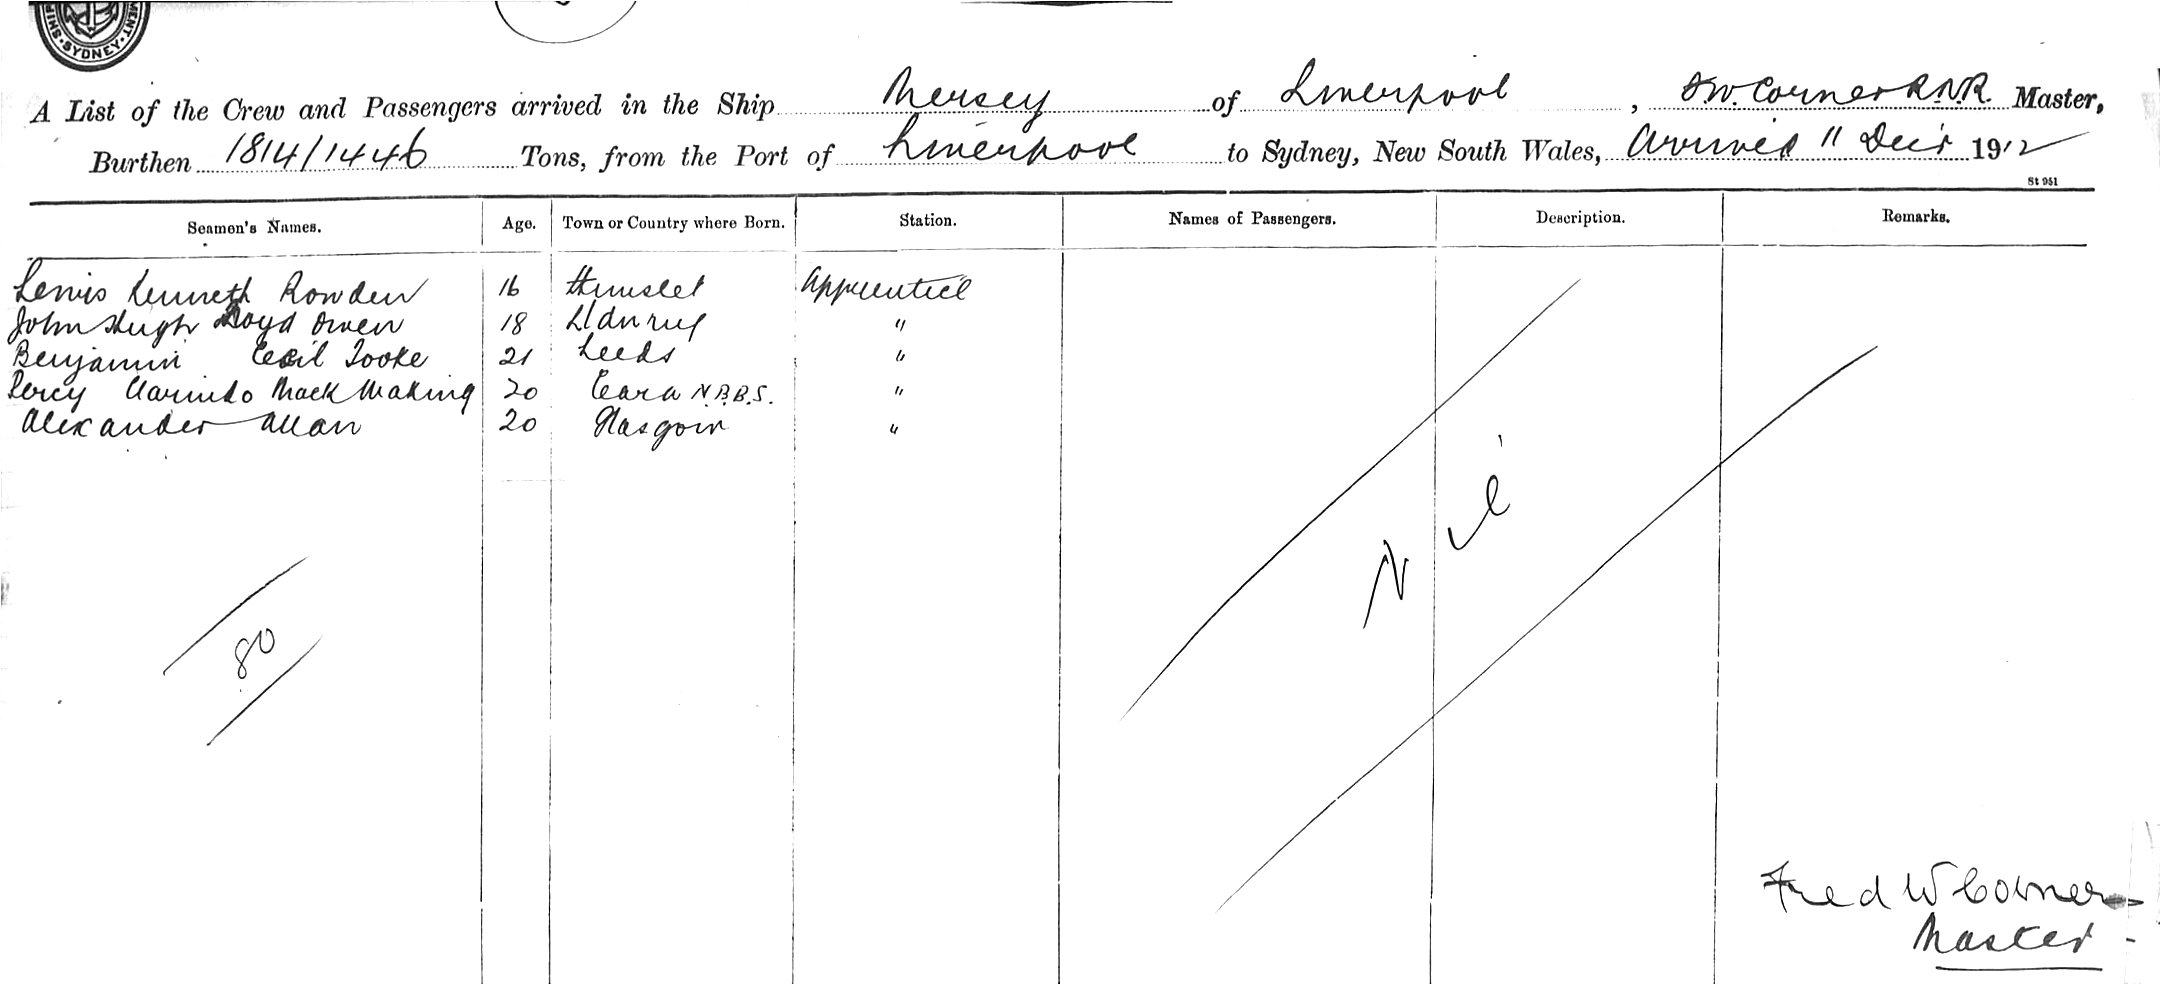 SYDNEY
A List of the Crew and Passengers arrived in the Ship Mersey of Liverpool, F.W. Corner R.N.R. Master,
Burthen 1814/1446 Tons, from the Port of Liverpool to Sydney, New South Wales, Arrived 11 Decr 1912
St 951
Seamen's Names. Age. Town or Country where Born. Station. Names of Passengers. Description. Remarks.
Lewis Kenneth Rowden 16 Hunslet Apprentice
John Hugh Lloyd Owen 18 Llanrug "
Benjamin Cecil Tooke 21 Leeds "
Percy Mack Making 20 "
Alexander Allan 20 Glasgow "
Nil
80
Fred W Corner
Master